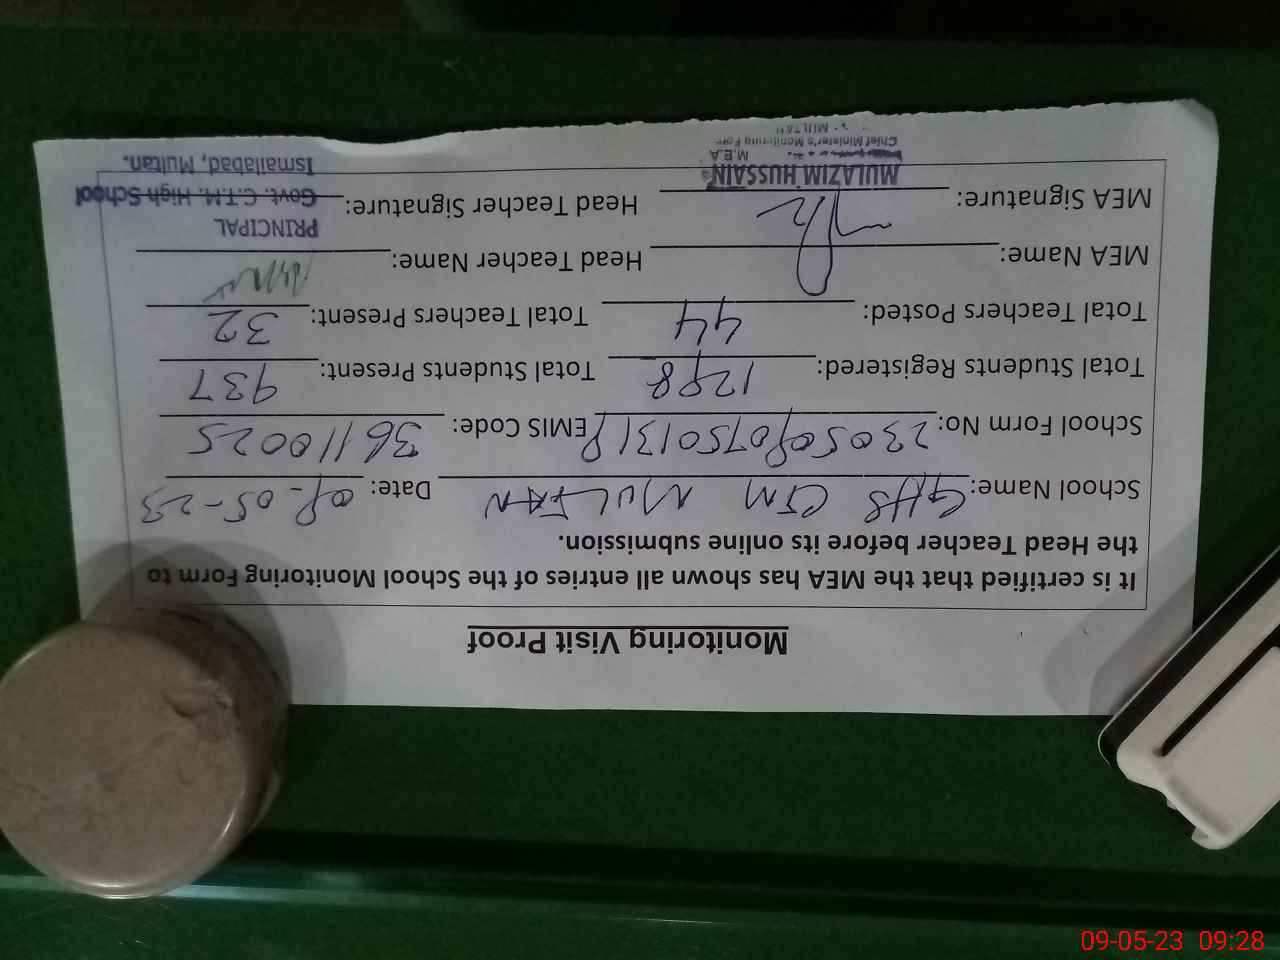 Monitoring Visit Proof
It is certified that the MEA has shown all entries of the School Monitoring Form to
the Head Teacher before its online submission.
School Name: GHS CTM MULTAN Date:
School Form No: EMIS Code: 36110025
Total Students Registered: 1298 Total Students Present: 937
Total Teachers Posted: 44 Total Teachers Present: 32
MEA Name: Head Teacher Name:
MEA Signature: Head Teacher Signature:
PRINCIPAL
Govt. C.T.M. High School
Ismailabad, Multan.
MULAZIM HUSSAIN
M.E.A
Chief Minister's Monitoring
MULTAN
09-05-23 09:28